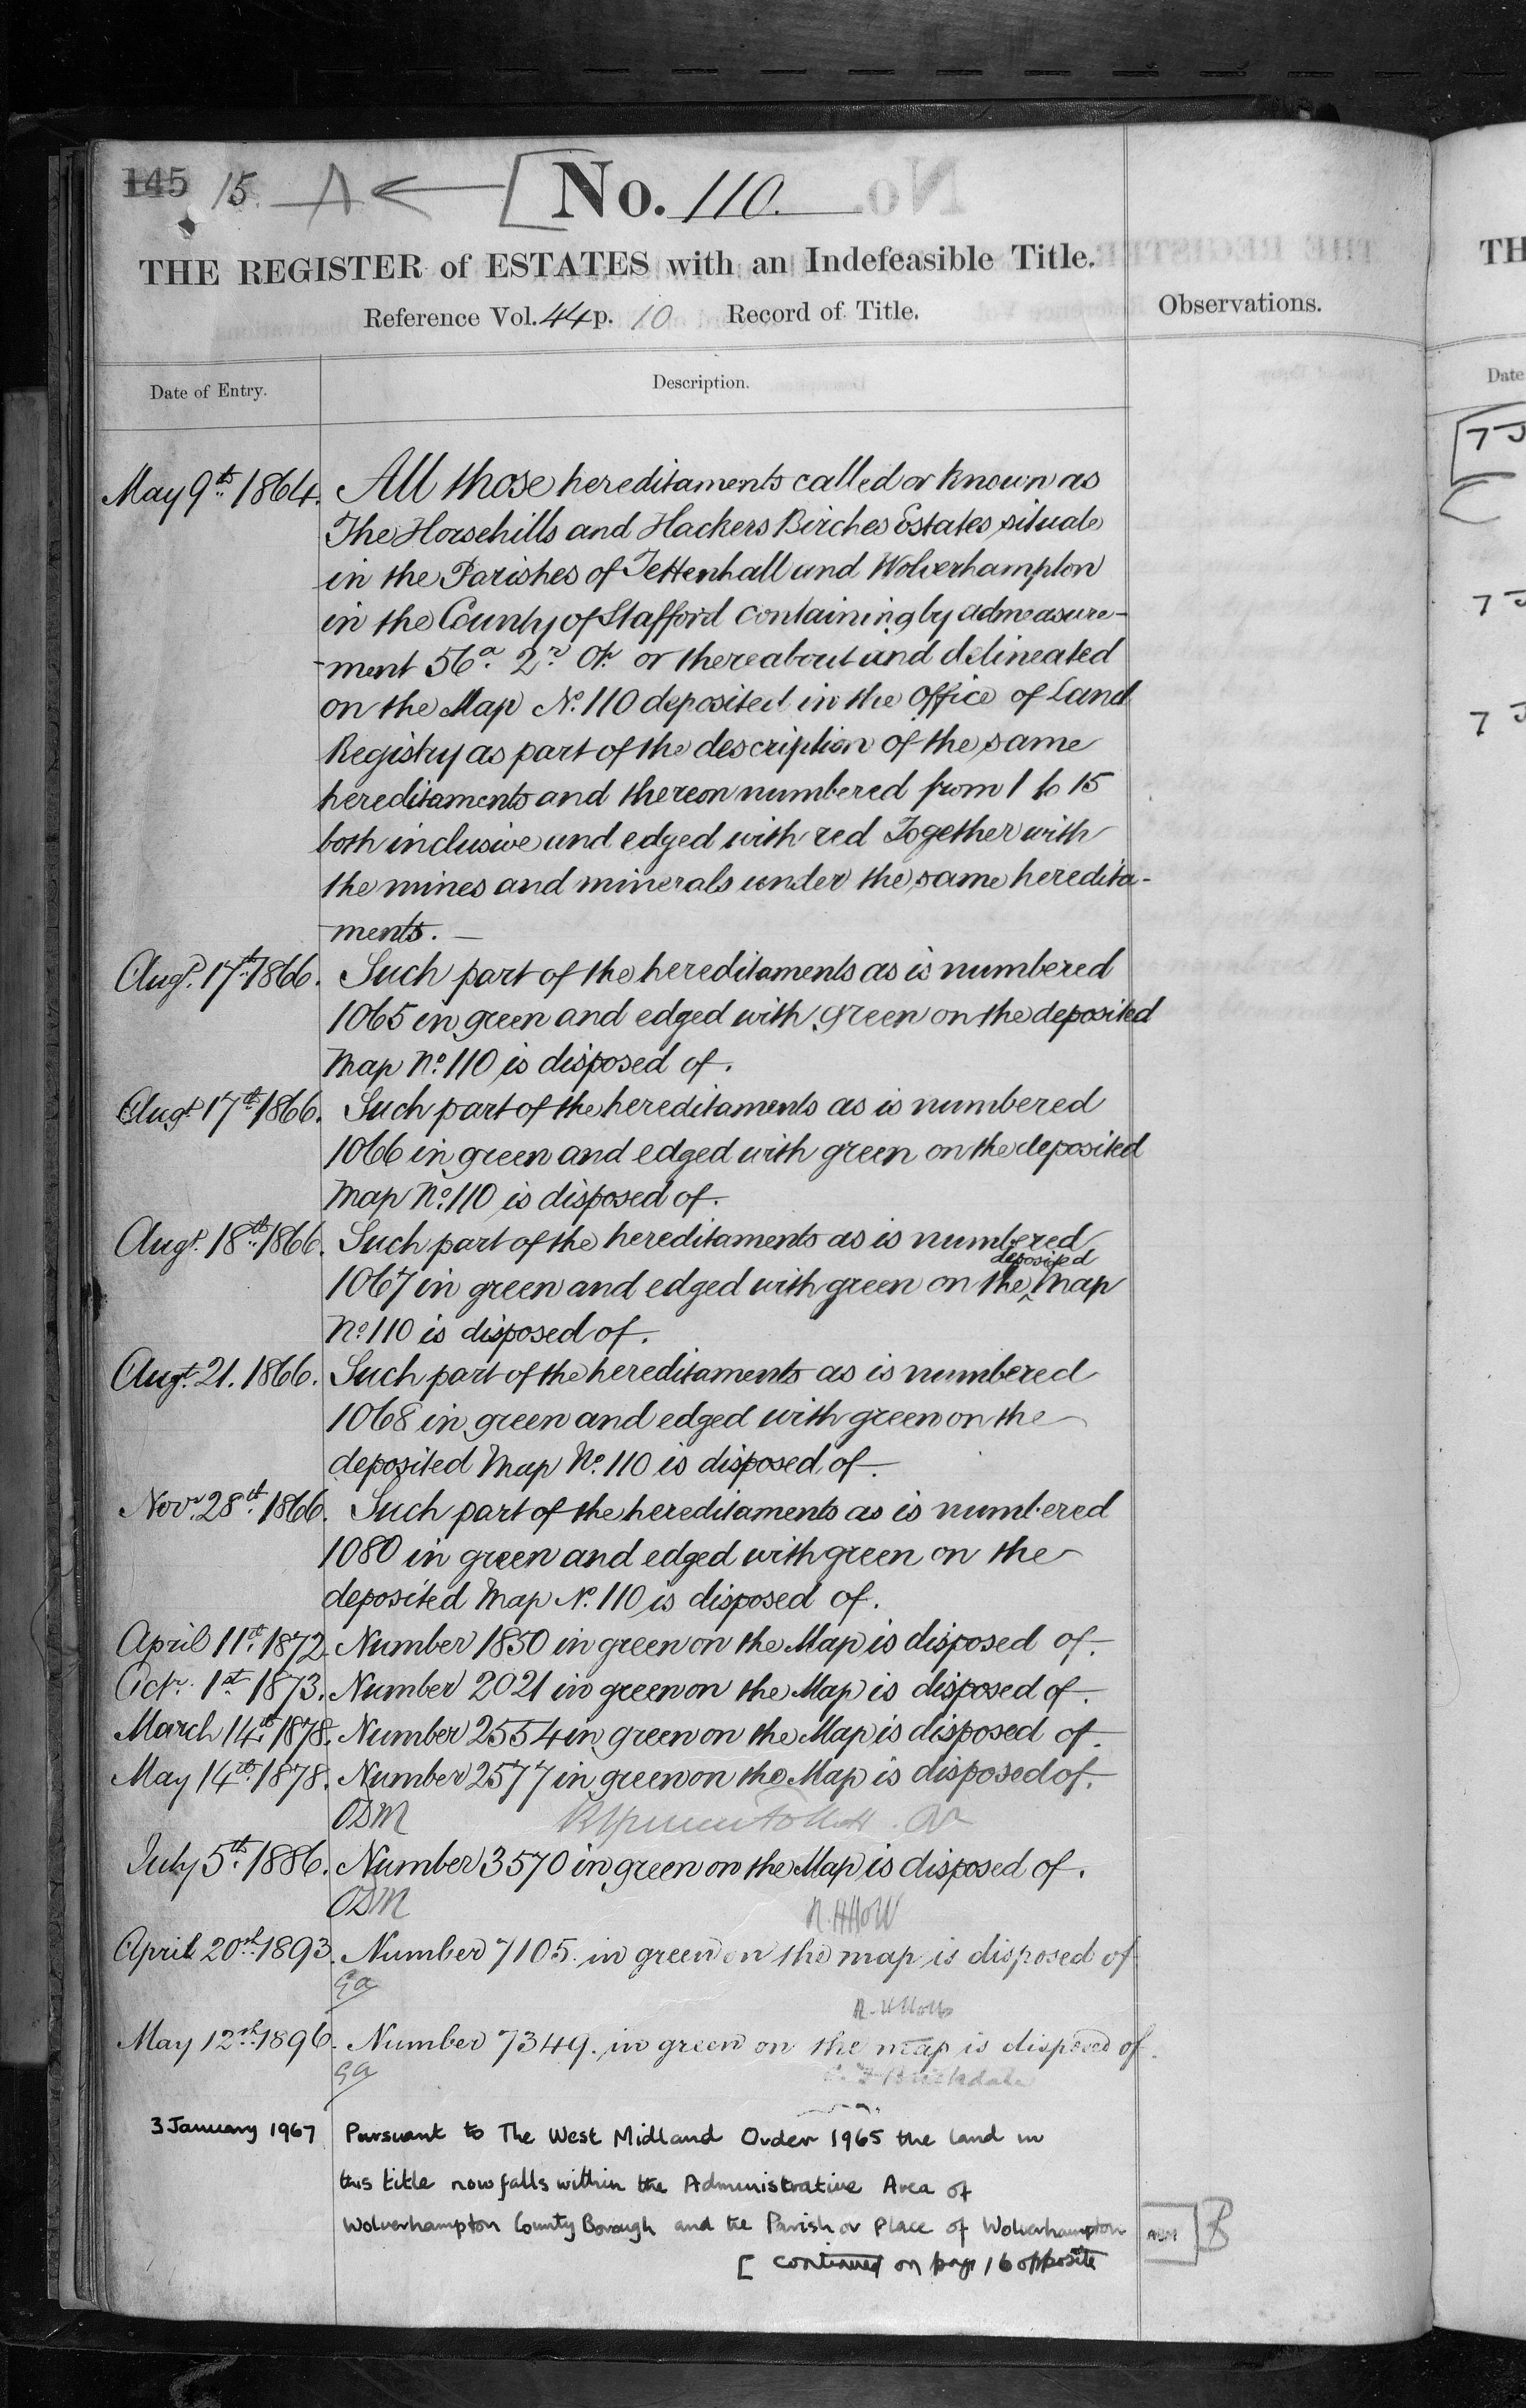 145 15. A
No. 110.
THE REGISTER of ESTATES with an Indefeasible Title.
Reference Vol. 44 p. 10 Record of Title.
Observations.
Date of Entry.
Description.
May 9th 1864. All those hereditaments called or known as
The Horsehills and Hackers Birches Estates situate
in the Parishes of Tettenhall and Wolverhampton
in the County of Stafford containing by admeasure-
-ment 56a. 2r. 0p. or thereabout and delineated
on the Map No. 110 deposited in the Office of Land
Registry as part of the description of the same
hereditaments and thereon numbered from 1 to 15
both inclusive and edged with red Together with
the mines and minerals under the same heredita-
ments. —
Augt. 17th 1866. Such part of the hereditaments as is numbered
1065 in green and edged with green on the deposited
Map No. 110 is disposed of.
Augt 17th 1866. Such part of the hereditaments as is numbered
1066 in green and edged with green on the deposited
Map No. 110 is disposed of.
Augt. 18th 1866. Such part of the hereditaments as is numbered
1067 in green and edged with green on the deposited Map
No. 110 is disposed of.
Augt. 21. 1866. Such part of the hereditaments as is numbered
1068 in green and edged with green on the
deposited Map No. 110 is disposed of.
Novr. 28th 1866. Such part of the hereditaments as is numbered
1080 in green and edged with green on the
deposited Map No. 110 is disposed of.
April 11th 1872. Number 1850 in green on the Map is disposed of.
Octr. 1st 1873. Number 2021 in green on the Map is disposed of.
March 14th 1878. Number 2554 in green on the Map is disposed of.
May 14th 1878. Number 2577 in green on the Map is disposed of.
ODM
July 5th 1886. Number 3570 in green on the Map is disposed of.
ODM
R. H Holt
April 20th 1893. Number 7105. in green on the map is disposed of
Ga
May 12th 1896. Number 7349. in green on the map is disposed of.
Ga
Brickdale
3 January 1967 Pursuant to The West Midland Order 1965 the land in
this title now falls within the Administrative Area of
Wolverhampton County Borough and the Parish or Place of Wolverhampton
[ continued on page 16 opposite
B
TH
Date
7 J
7 J
7 J